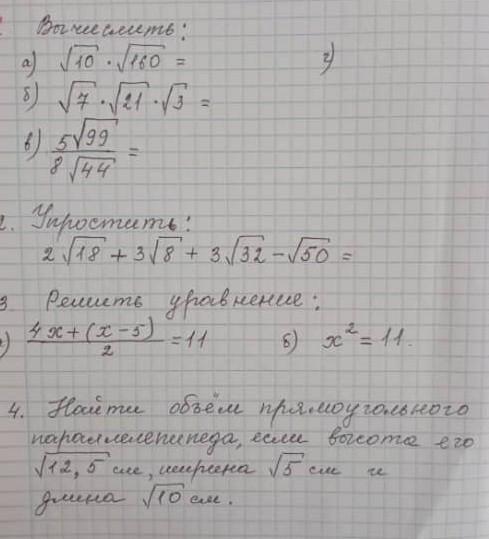 Вычислить:
а) √10 · √160 = г)
б) √7 · √21 · √3 =
в) 5√99 / 8√44 =
2. Упростить:
2√18 + 3√8 + 3√32 - √50 =
3 Решить уравнение:
) 4x + (x - 5) / 2 = 11 б) x² = 11.
4. Найти объём прямоугольного
параллелепипеда, если высота его
√12,5 см, ширина √5 см и
длина √10 см.